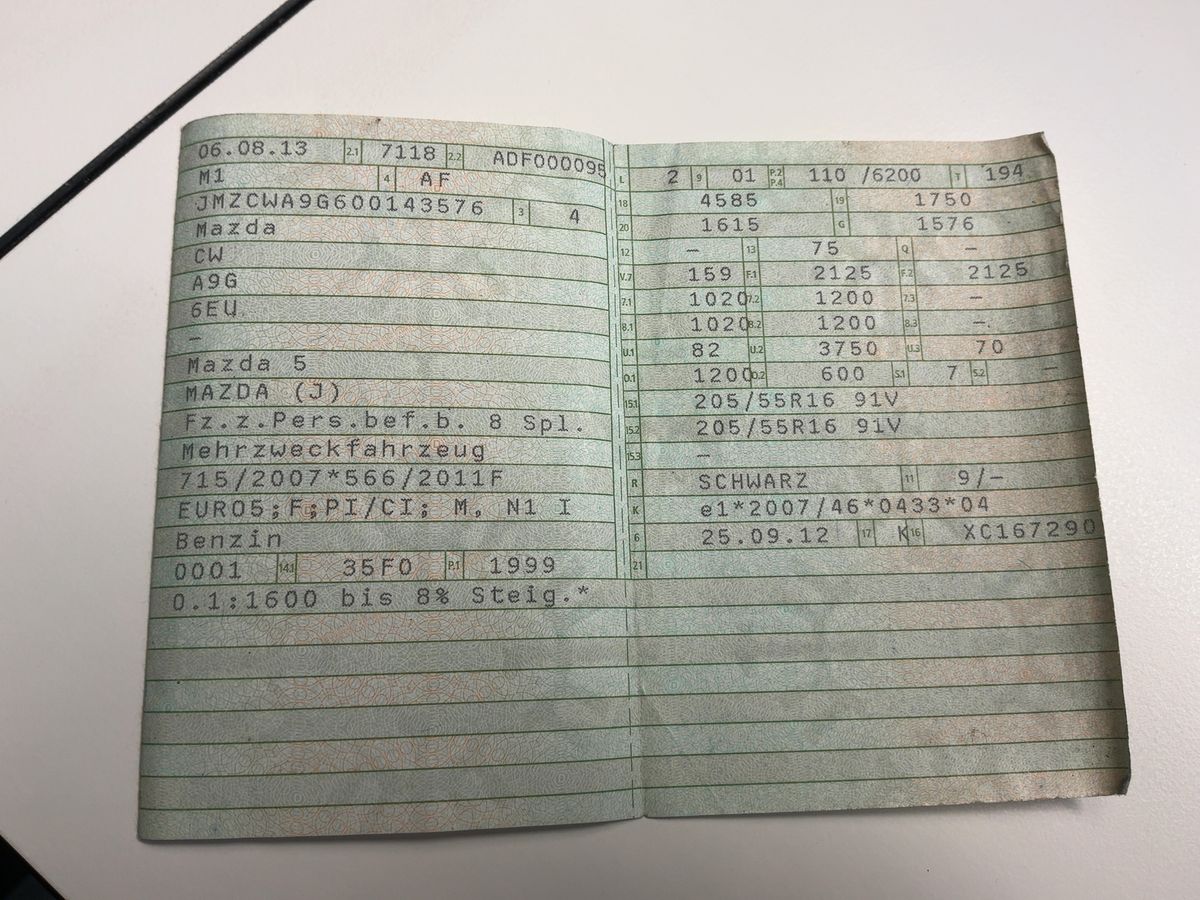 06.08.13 2.1 7118 2.2 ADF000095
M1 4 AF
JMZCWA9G600143576 3 4
Mazda
CW
A9G
6EU
–
Mazda 5
MAZDA (J)
Fz.z.Pers.bef.b. 8 Spl.
Mehrzweckfahrzeug
715/2007*566/2011F
EURO5;F;PI/CI; M, N1 I
Benzin
0001 14.1 35F0 P.1 1999
O.1:1600 bis 8% Steig.*
L 2 9 01 P.2 P.4 110 /6200 T 194
18 4585 19 1750
20 1615 G 1576
12 – 13 75 Q –
V.7 159 F.1 2125 F.2 2125
7.1 1020 7.2 1200 7.3 –
8.1 1020 8.2 1200 8.3 –
U.1 82 U.2 3750 U.3 70
O.1 1200 O.2 600 S.1 7 S.2 –
15.1 205/55R16 91V
15.2 205/55R16 91V
15.3 –
R SCHWARZ 11 9/–
K e1*2007/46*0433*04
6 25.09.12 17 K 16 XC167290
21